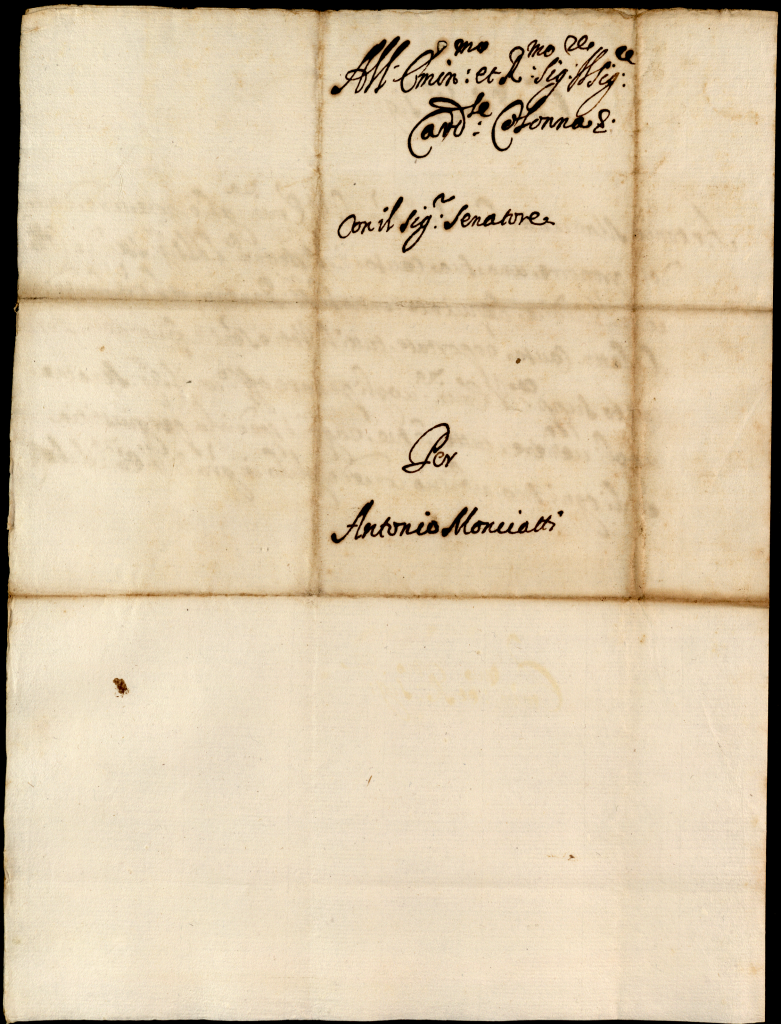 All' Emin:mo et R:mo Sig:re Sig:re
Card:le Colonna &.
Con il Sig:r Senatore
Per
Antonio Monciatti